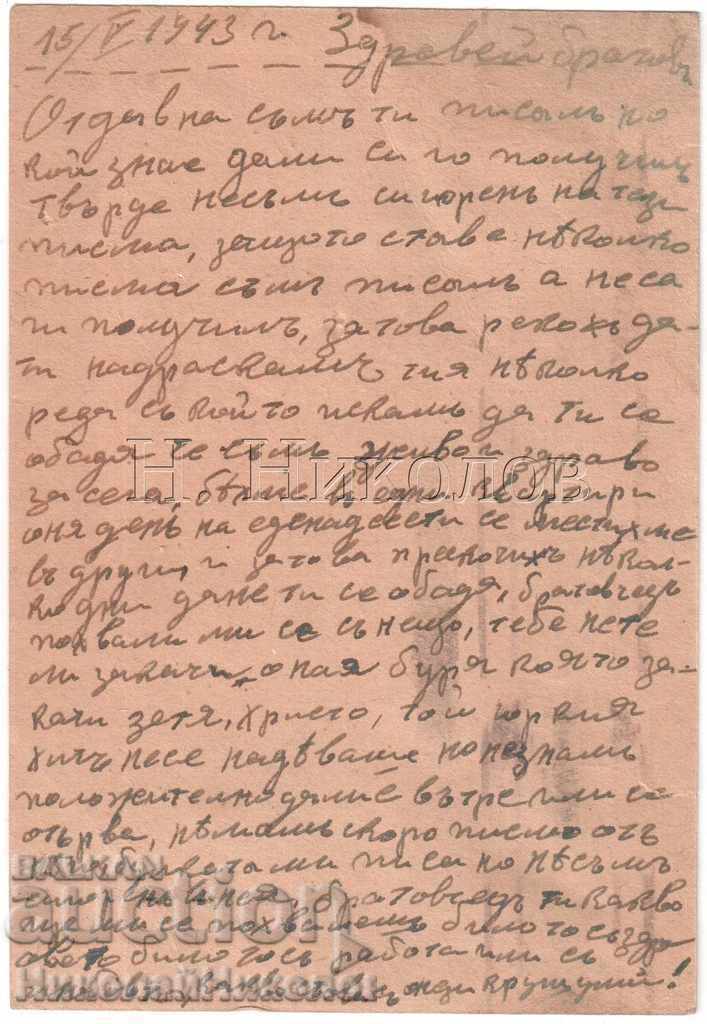 15/V 1943 г. Здравей братовч.
Отдавна съмъ ти писалъ но
кой знае дали си го получилъ
твърде несъмъ сигоренъ на тези
писма, защото става нѣколко
писма съмъ писалъ а неса
ги получилъ, затова рекохъ да
ти надраскамъ тия нѣколко
реда съ който искамъ да ти се
обадя че съмъ живо и здраво
за сега, бѣхме въ едни
оня день на единадесети се местихме
въ други, и затова прескочихъ нѣкол-
ко дни да не ти се обадя, братовчедъ
похвали ми се съ нещо, тебе нете
ли закачи оная буря която за-
качи зетя, Христо, той юркия
хичъ несе надѣваше но незнамъ
положително дали е вътре или се
отърва, нѣмамъ скоро писмо отъ
ми писа но нѣсъмъ
братовчедъ ти какво
ще ми се похвалешъ билото съ здра
вето билото съ работа или съ
Н. Николов
BALKAN
auction
Николай Николов